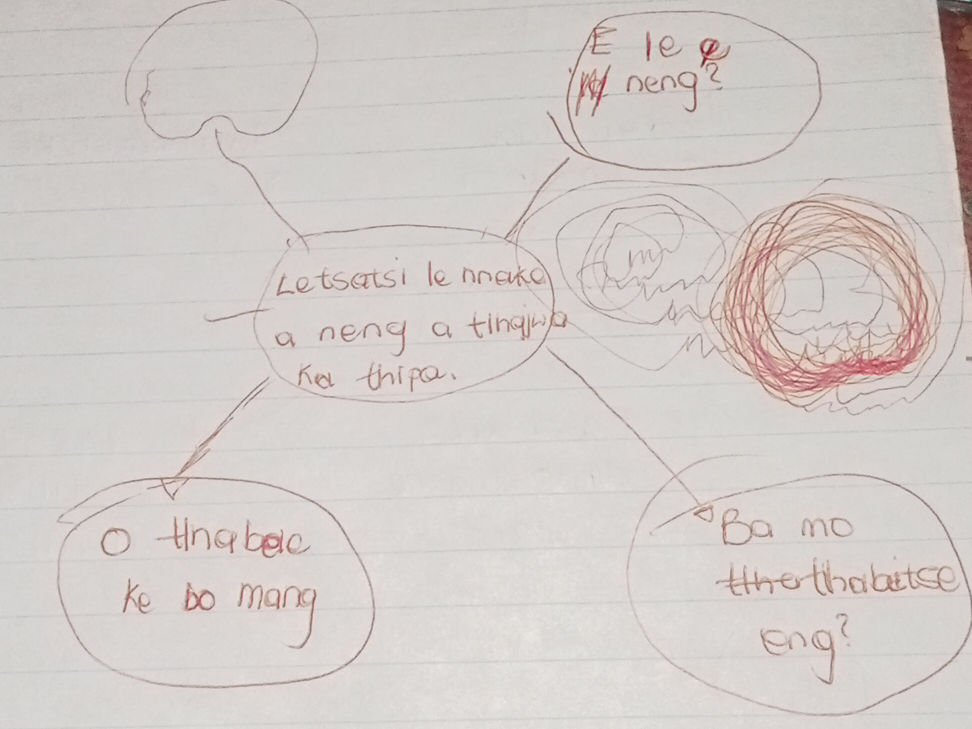 E le e
neng?
Letsatsi le nnake
a neng a tlhajwa
ka thipa.
O tlhabac
ke bo mang
Ba mo
tlhabetse
eng?